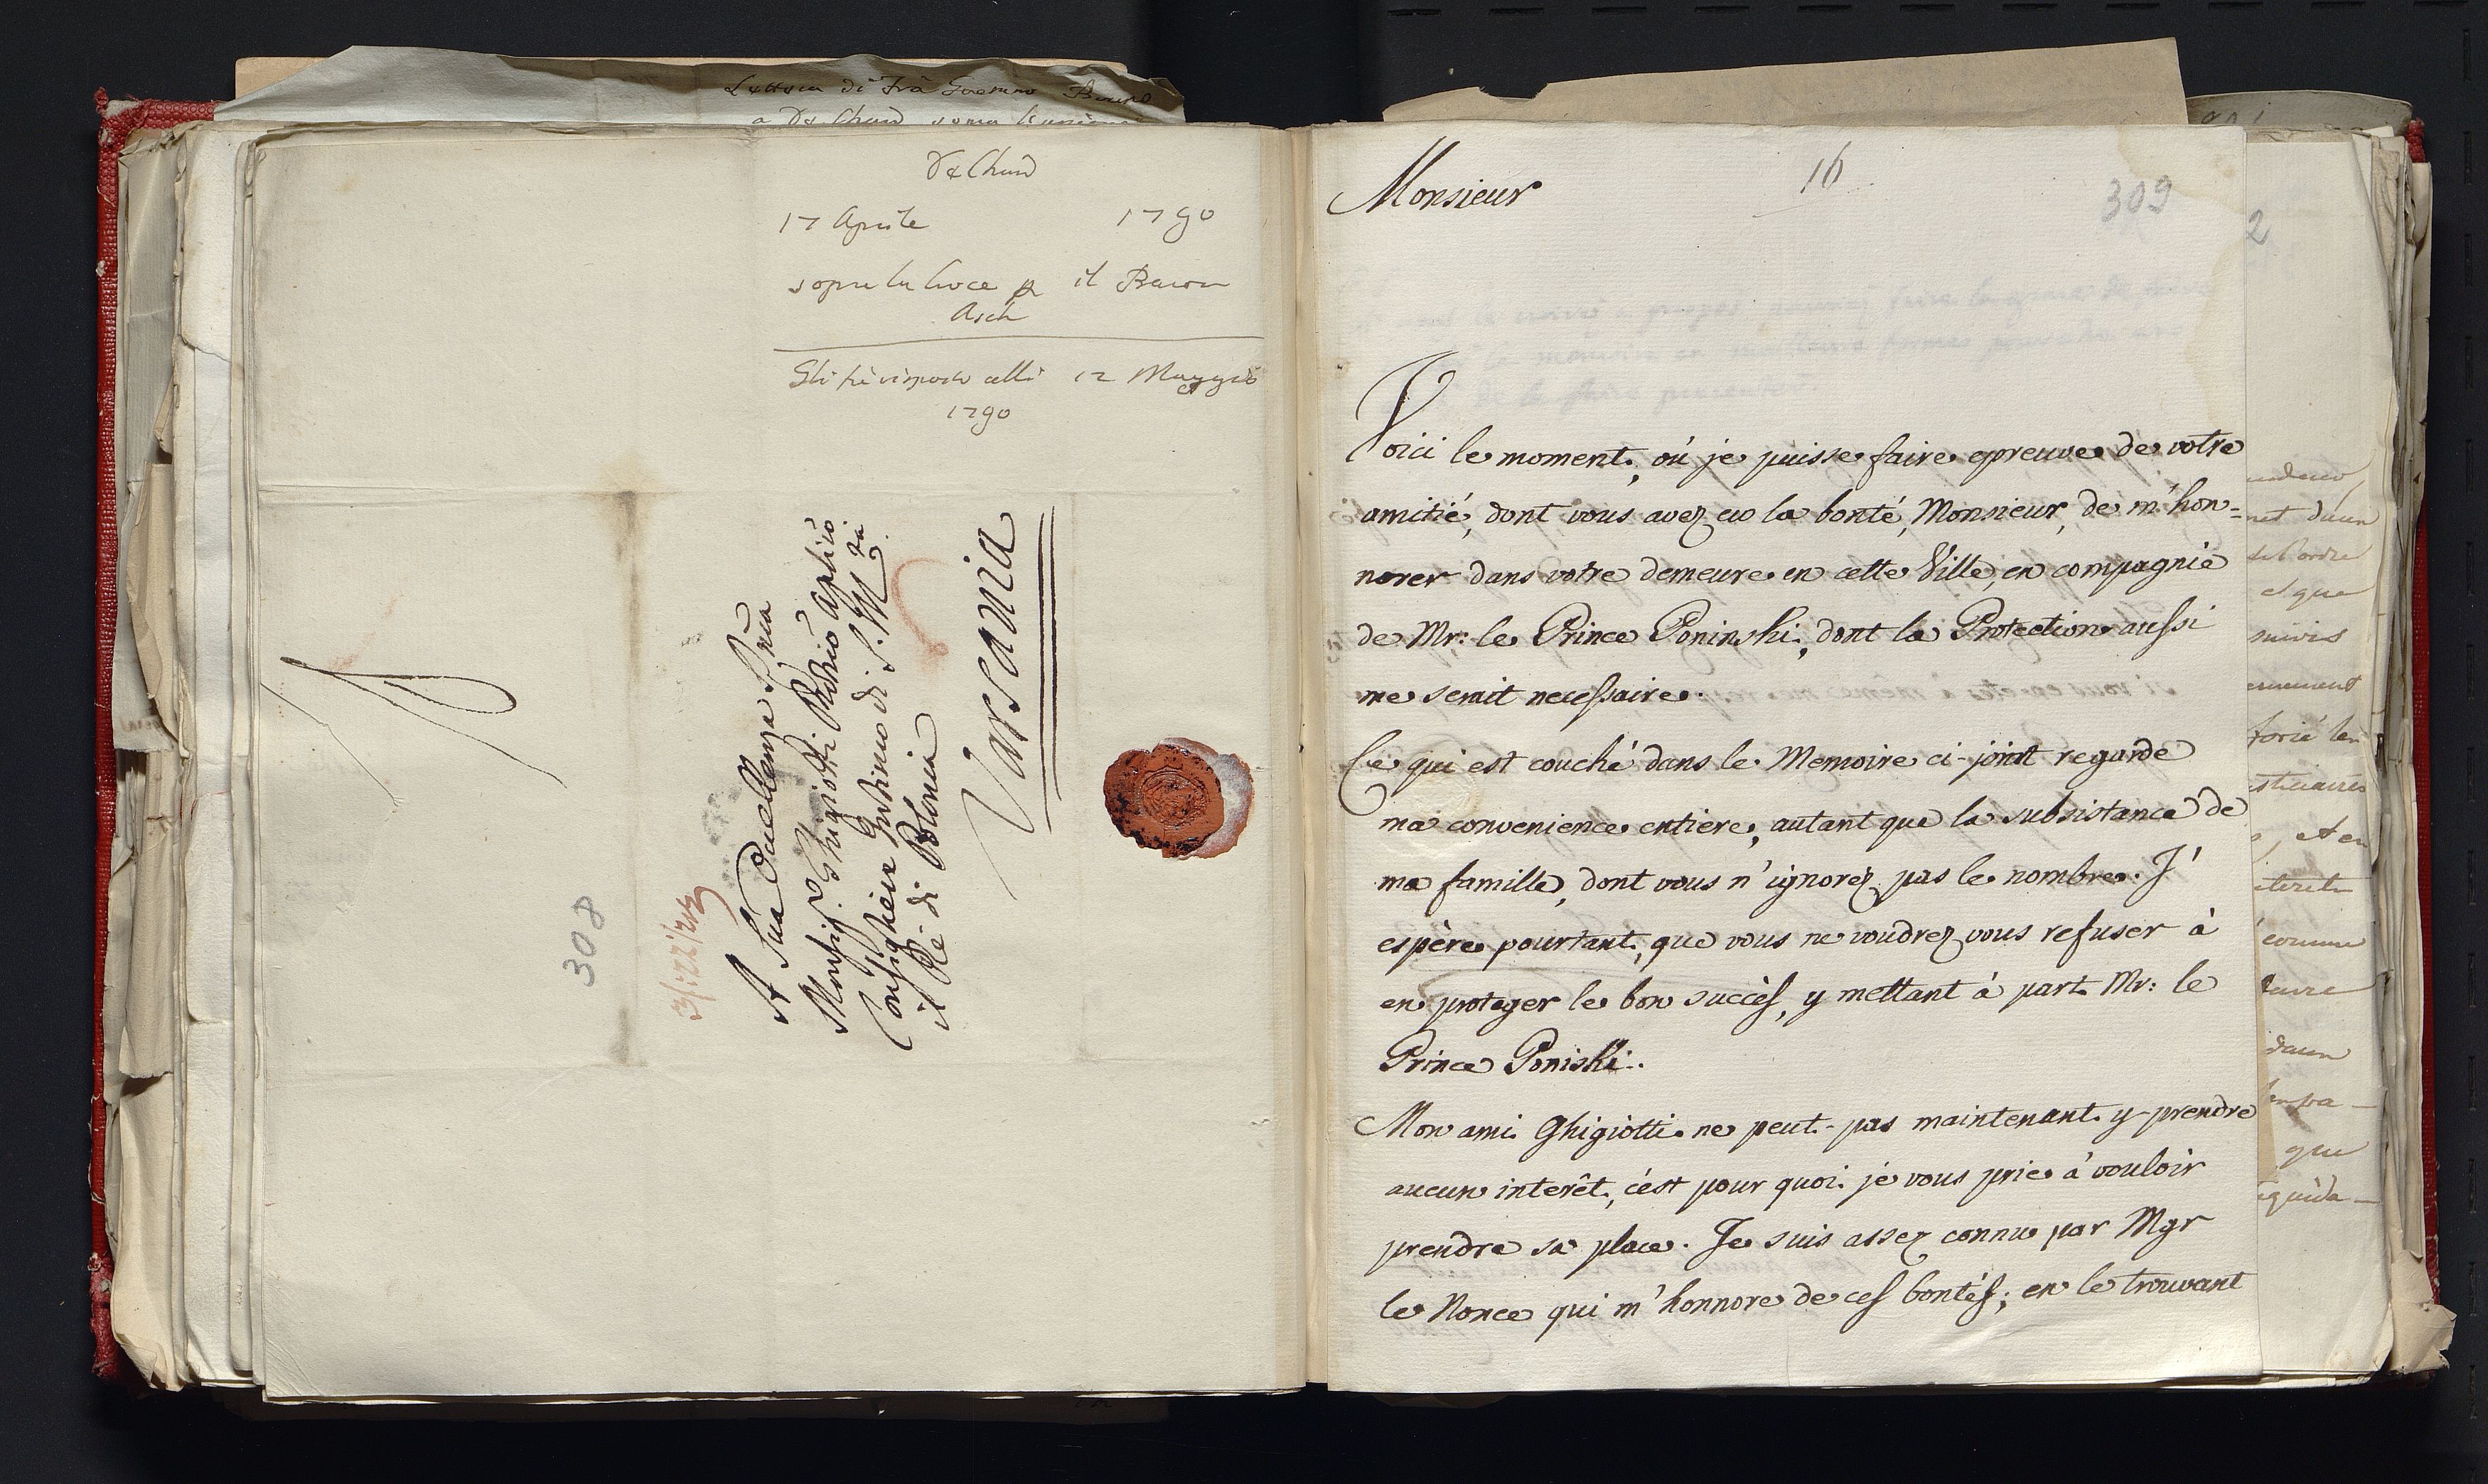 Lettera di Frà
De Chund
17 Aprile 1790
sopra la Croce p il Baron
Asch
Gli hò risposto alli 12 Maggio
1790
A Sua Eccellenza Rrña
Monsig.r Ghigiotti Protrio Aplico
Consigliere Intimo di S. M. tà
il Rè di Polonia
Varsavia
308
Monsieur
16
309
2
Voici le moment, où je puisse faire epreuve de votre
amitié, dont vous avez eu la bonté, Monsieur, de m'hon=
norer dans votre demeure en cette Ville, en compagnie
de Mr: le Prince Poninski, dont la Protection aussi
me serait necessaire.
Ce qui est couché dans le Memoire ci-joint regarde
ma convenience entiere, autant que la subsistance de
ma famille, dont vous n'ignorez pas le nombre. J'
espère pourtant, que vous ne voudrez vous refuser à
en proteger le bon succès, y mettant à part Mr: le
Prince Poniski.
Mon ami Ghigiotti ne peut-pas maintenant y prendre
aucun interêt, c'est pour quoi je vous prie à vouloir
prendre sa place. Je suis assez connu par Mgr
le Nonce qui m'honnore de ces bontés; en le trouvant
et que
comme
que